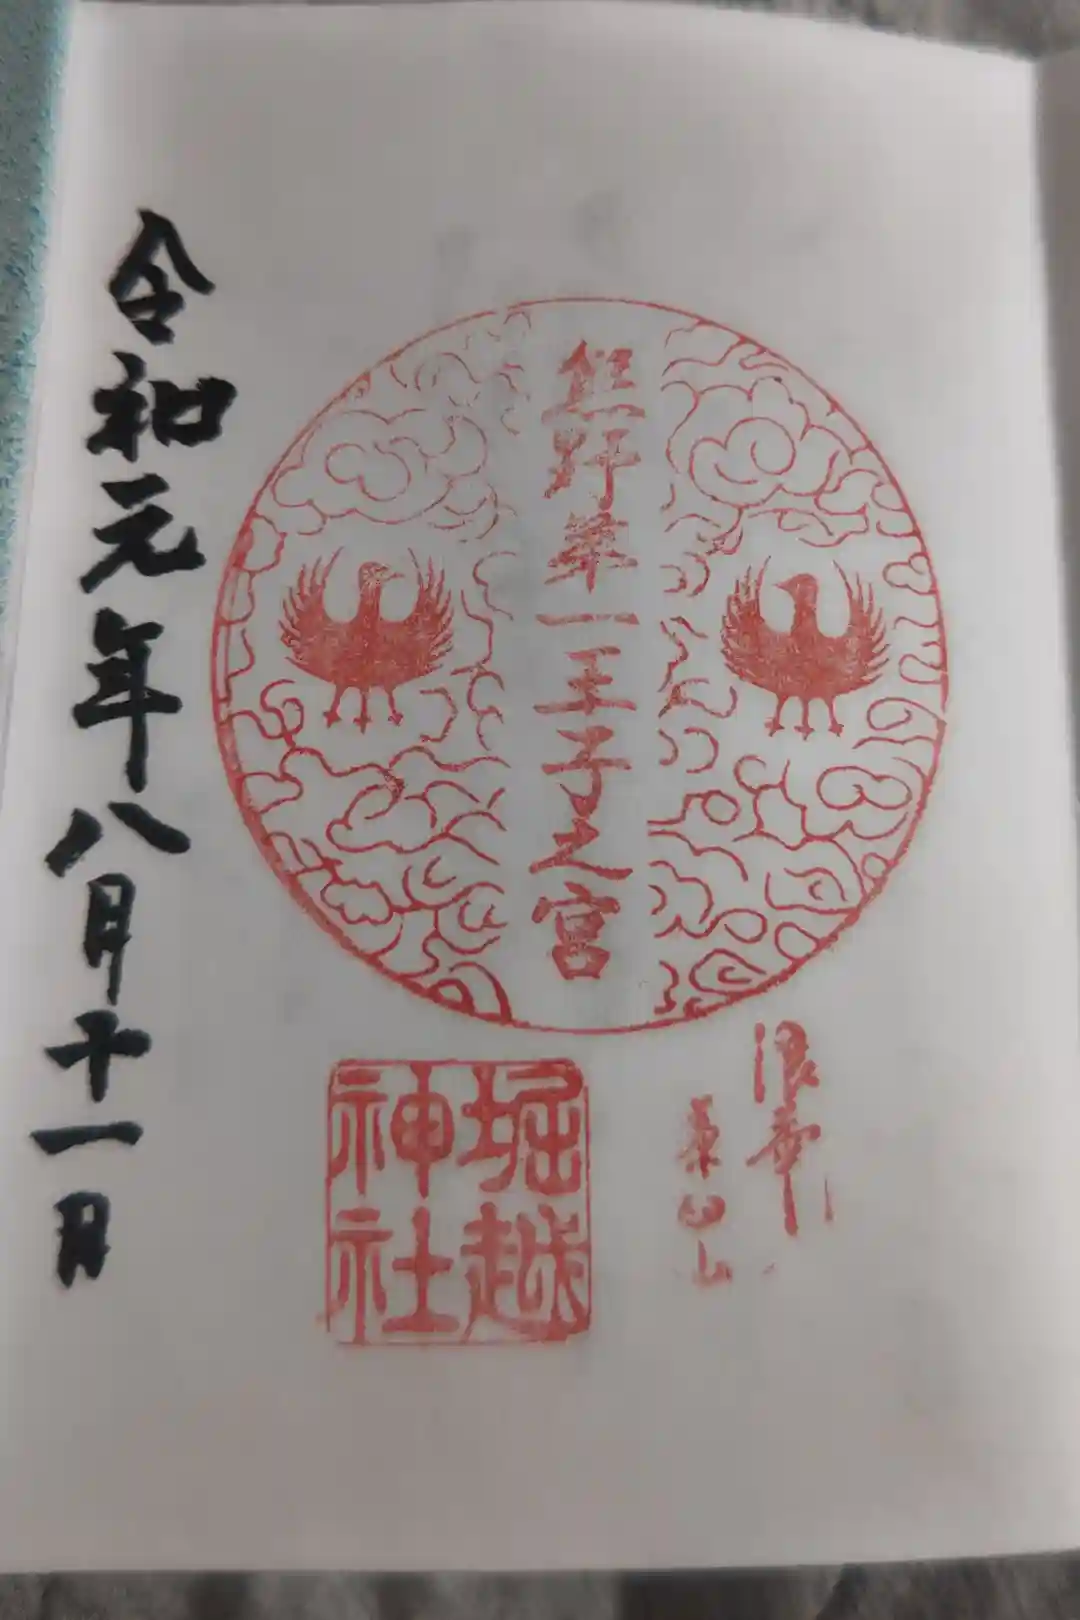 熊野第一王子之宮
浪華
茶臼山
堀越
神社
令和元年八月十一日